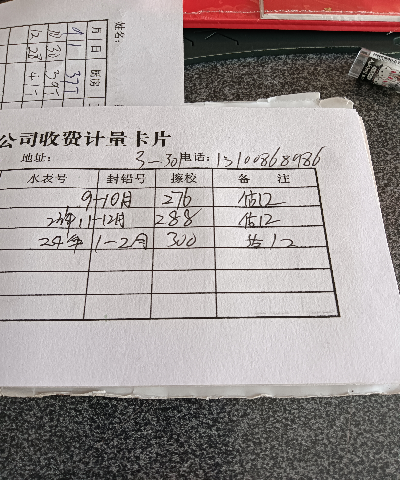 姓名:
月 日 酥滂
9 1 377
10 30 395
12 28 417
公司收费计量卡片
地址: 3-30 电话: 13100868986
水表号 封铅号 擦校 备 注
9-10月 276 估12
23年11-12月 288 估12
24年 1-2月 300 估12